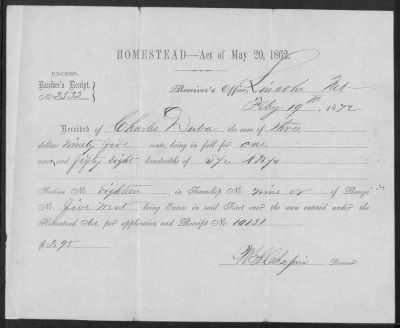 HOMESTEAD—Act of May 20, 1862.
EXCESS.
Receiver's Receipt,
No. 3332
Receiver's Office, Lincoln Neb
Feby 19th 1872
Received of Charles Duba the sum of three
dollars ninety five cents, being in full for one
acres and fifty eight hundredths of S½
Section No. eighteen in Township No. nine N of Range
No. five west being Excess in said Tract over the area entered under the
Homestead Act, per application and Receipt No. 10131
$3.95
Receiver